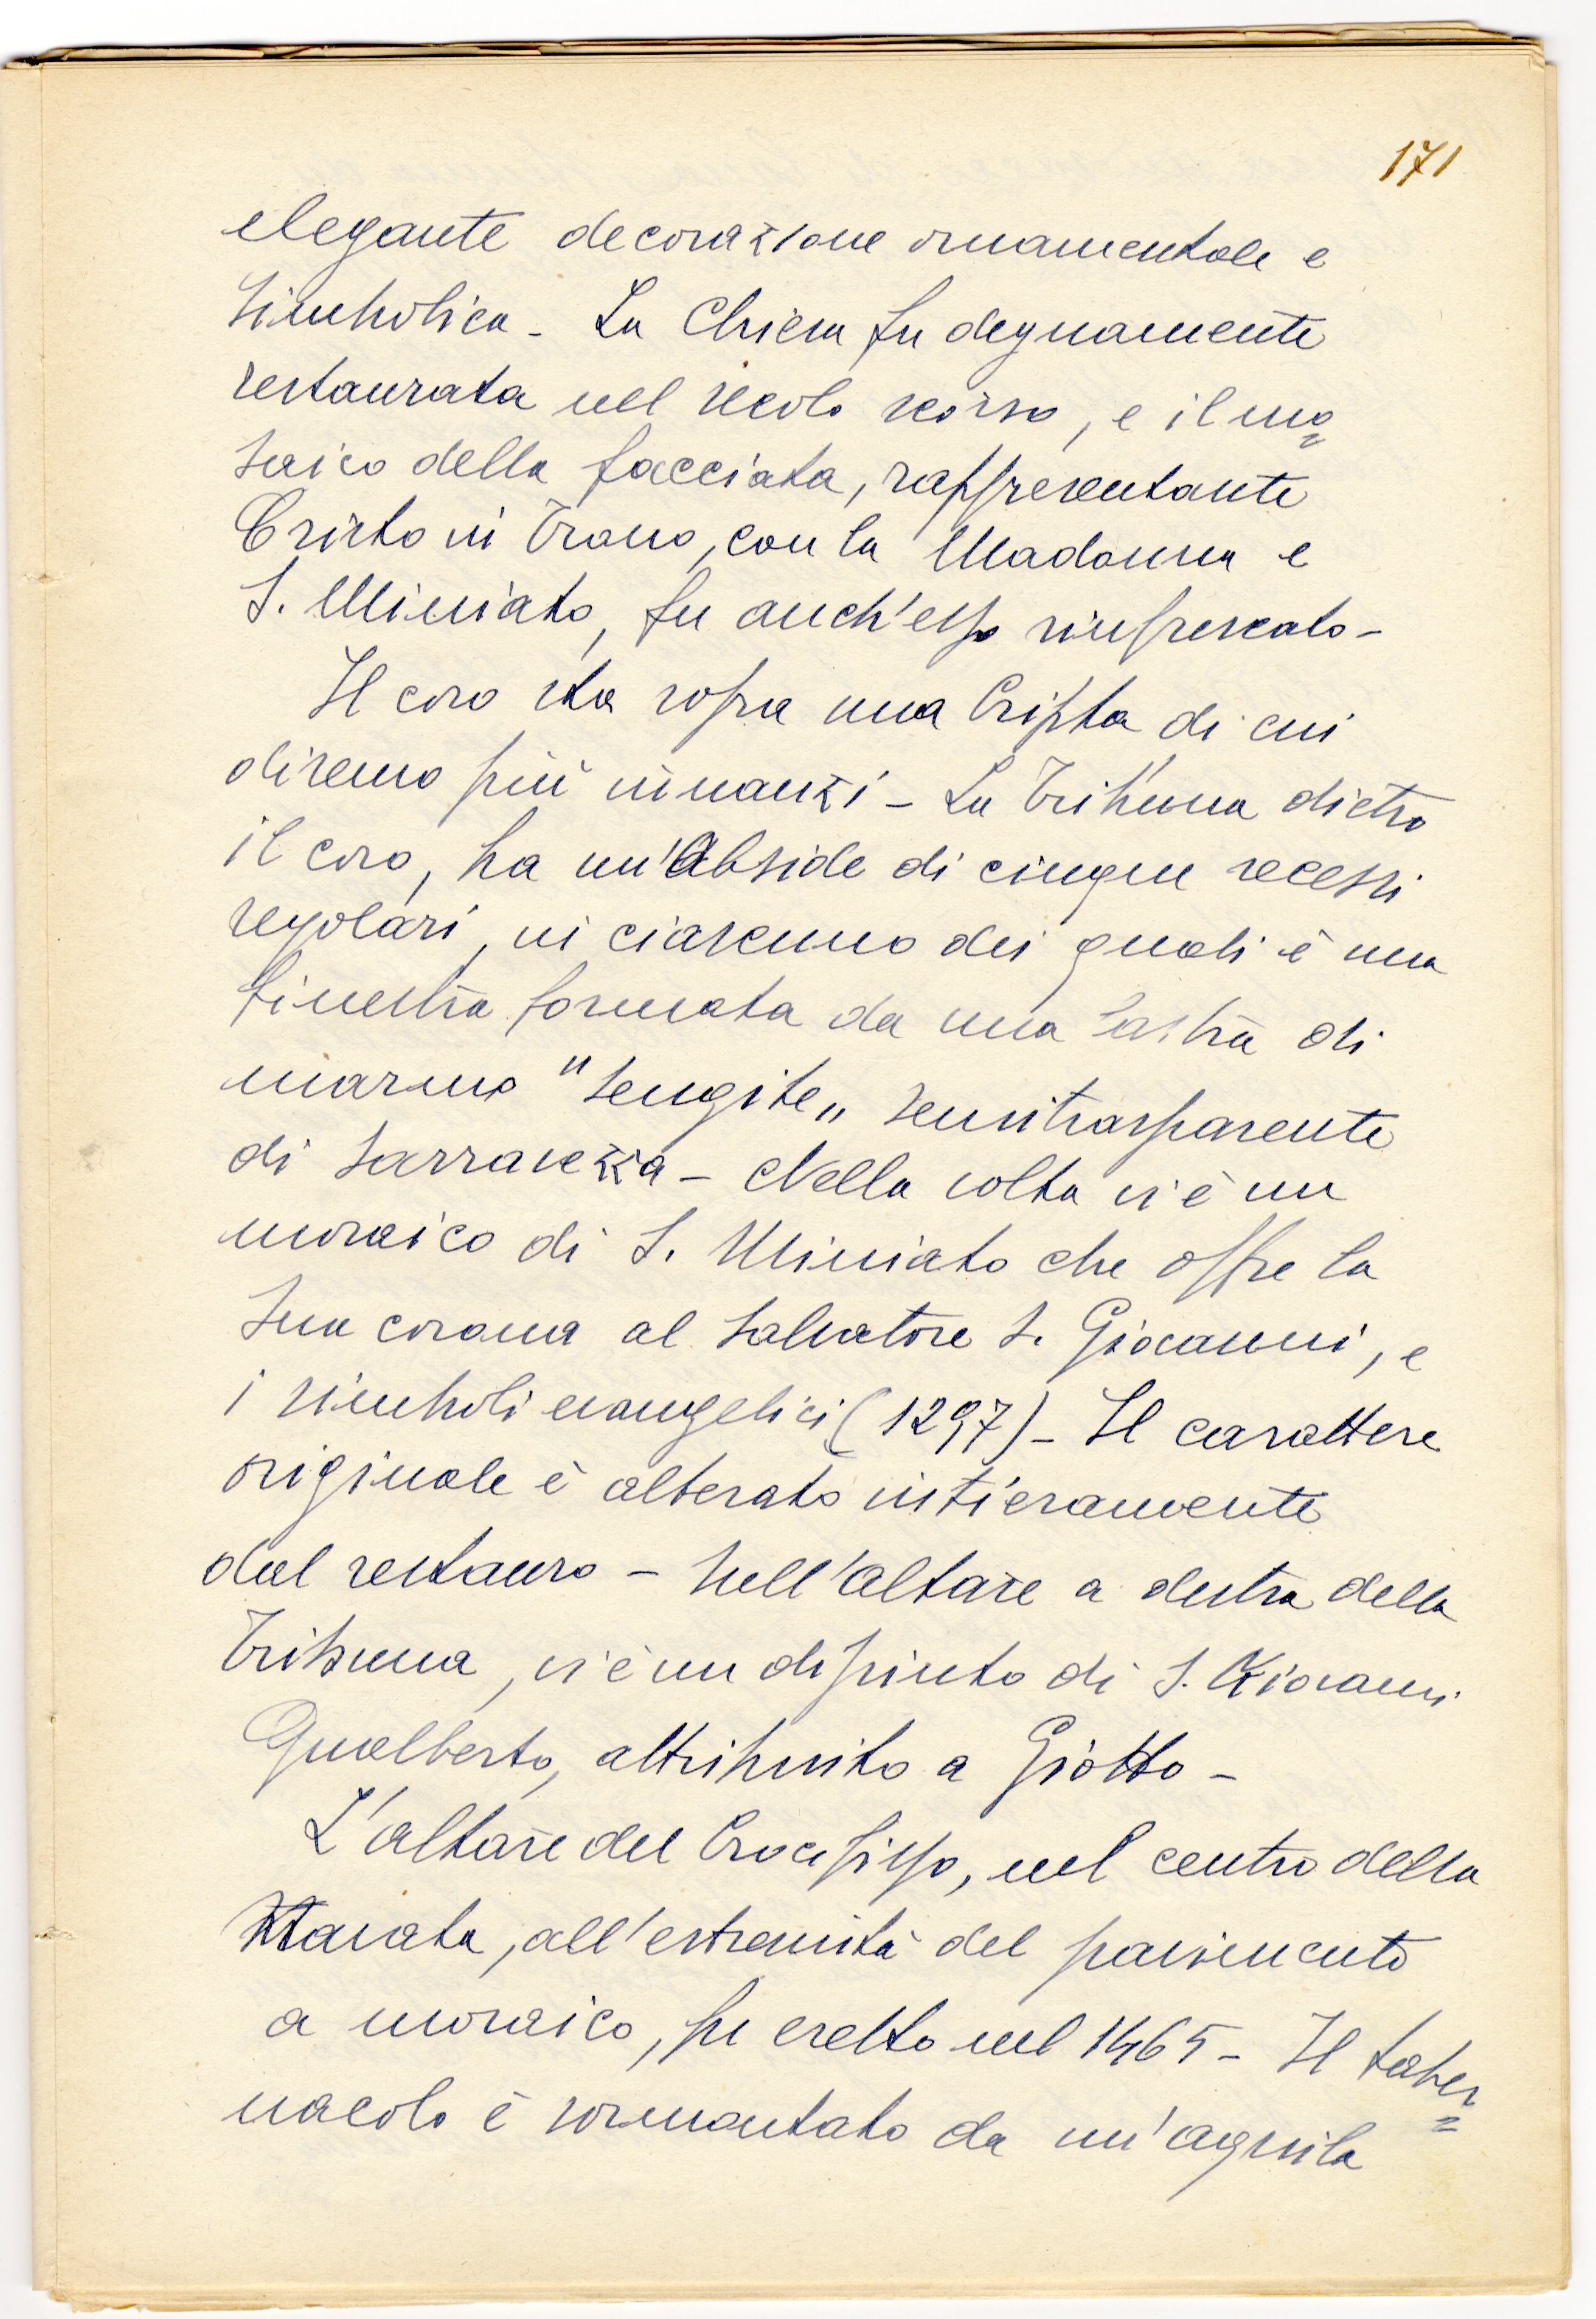 171
elegante decorazione ornamentale e
simbolica - La Chiesa fu degnamente
restaurata nel secolo scorso, e il mo=
saico della facciata, rappresentante
Cristo in Trono, con la Madonna e
S. Miniato, fu anch'esso rinfrescato -
Il coro sta sopra una Cripta di cui
diremo più innanzi - La Tribuna dietro
il coro, ha un'Abside di cinque recessi
regolari, in ciascuno dei quali è una
finestra formata da una lastra di
marmo "sengite„ semitrasparente
di Sarravezza - Nella volta vi è un
mosaico di S. Miniato che offre la
sua corona al Salvatore S. Giovanni, e
i simboli evangelici (1297) - Il carattere
originale è alterato intieramente
dal restauro - Sull'altare a destra della
Tribuna, vi è un dipinto di S. Giovanni
Gualberto, attribuito a Giotto -
L'altare del Crocifisso, nel centro della
Navata, all'estremità del pavimento
a mosaico, fu eretto nel 1465 - Il taber=
nacolo è sormontato da un'aquila